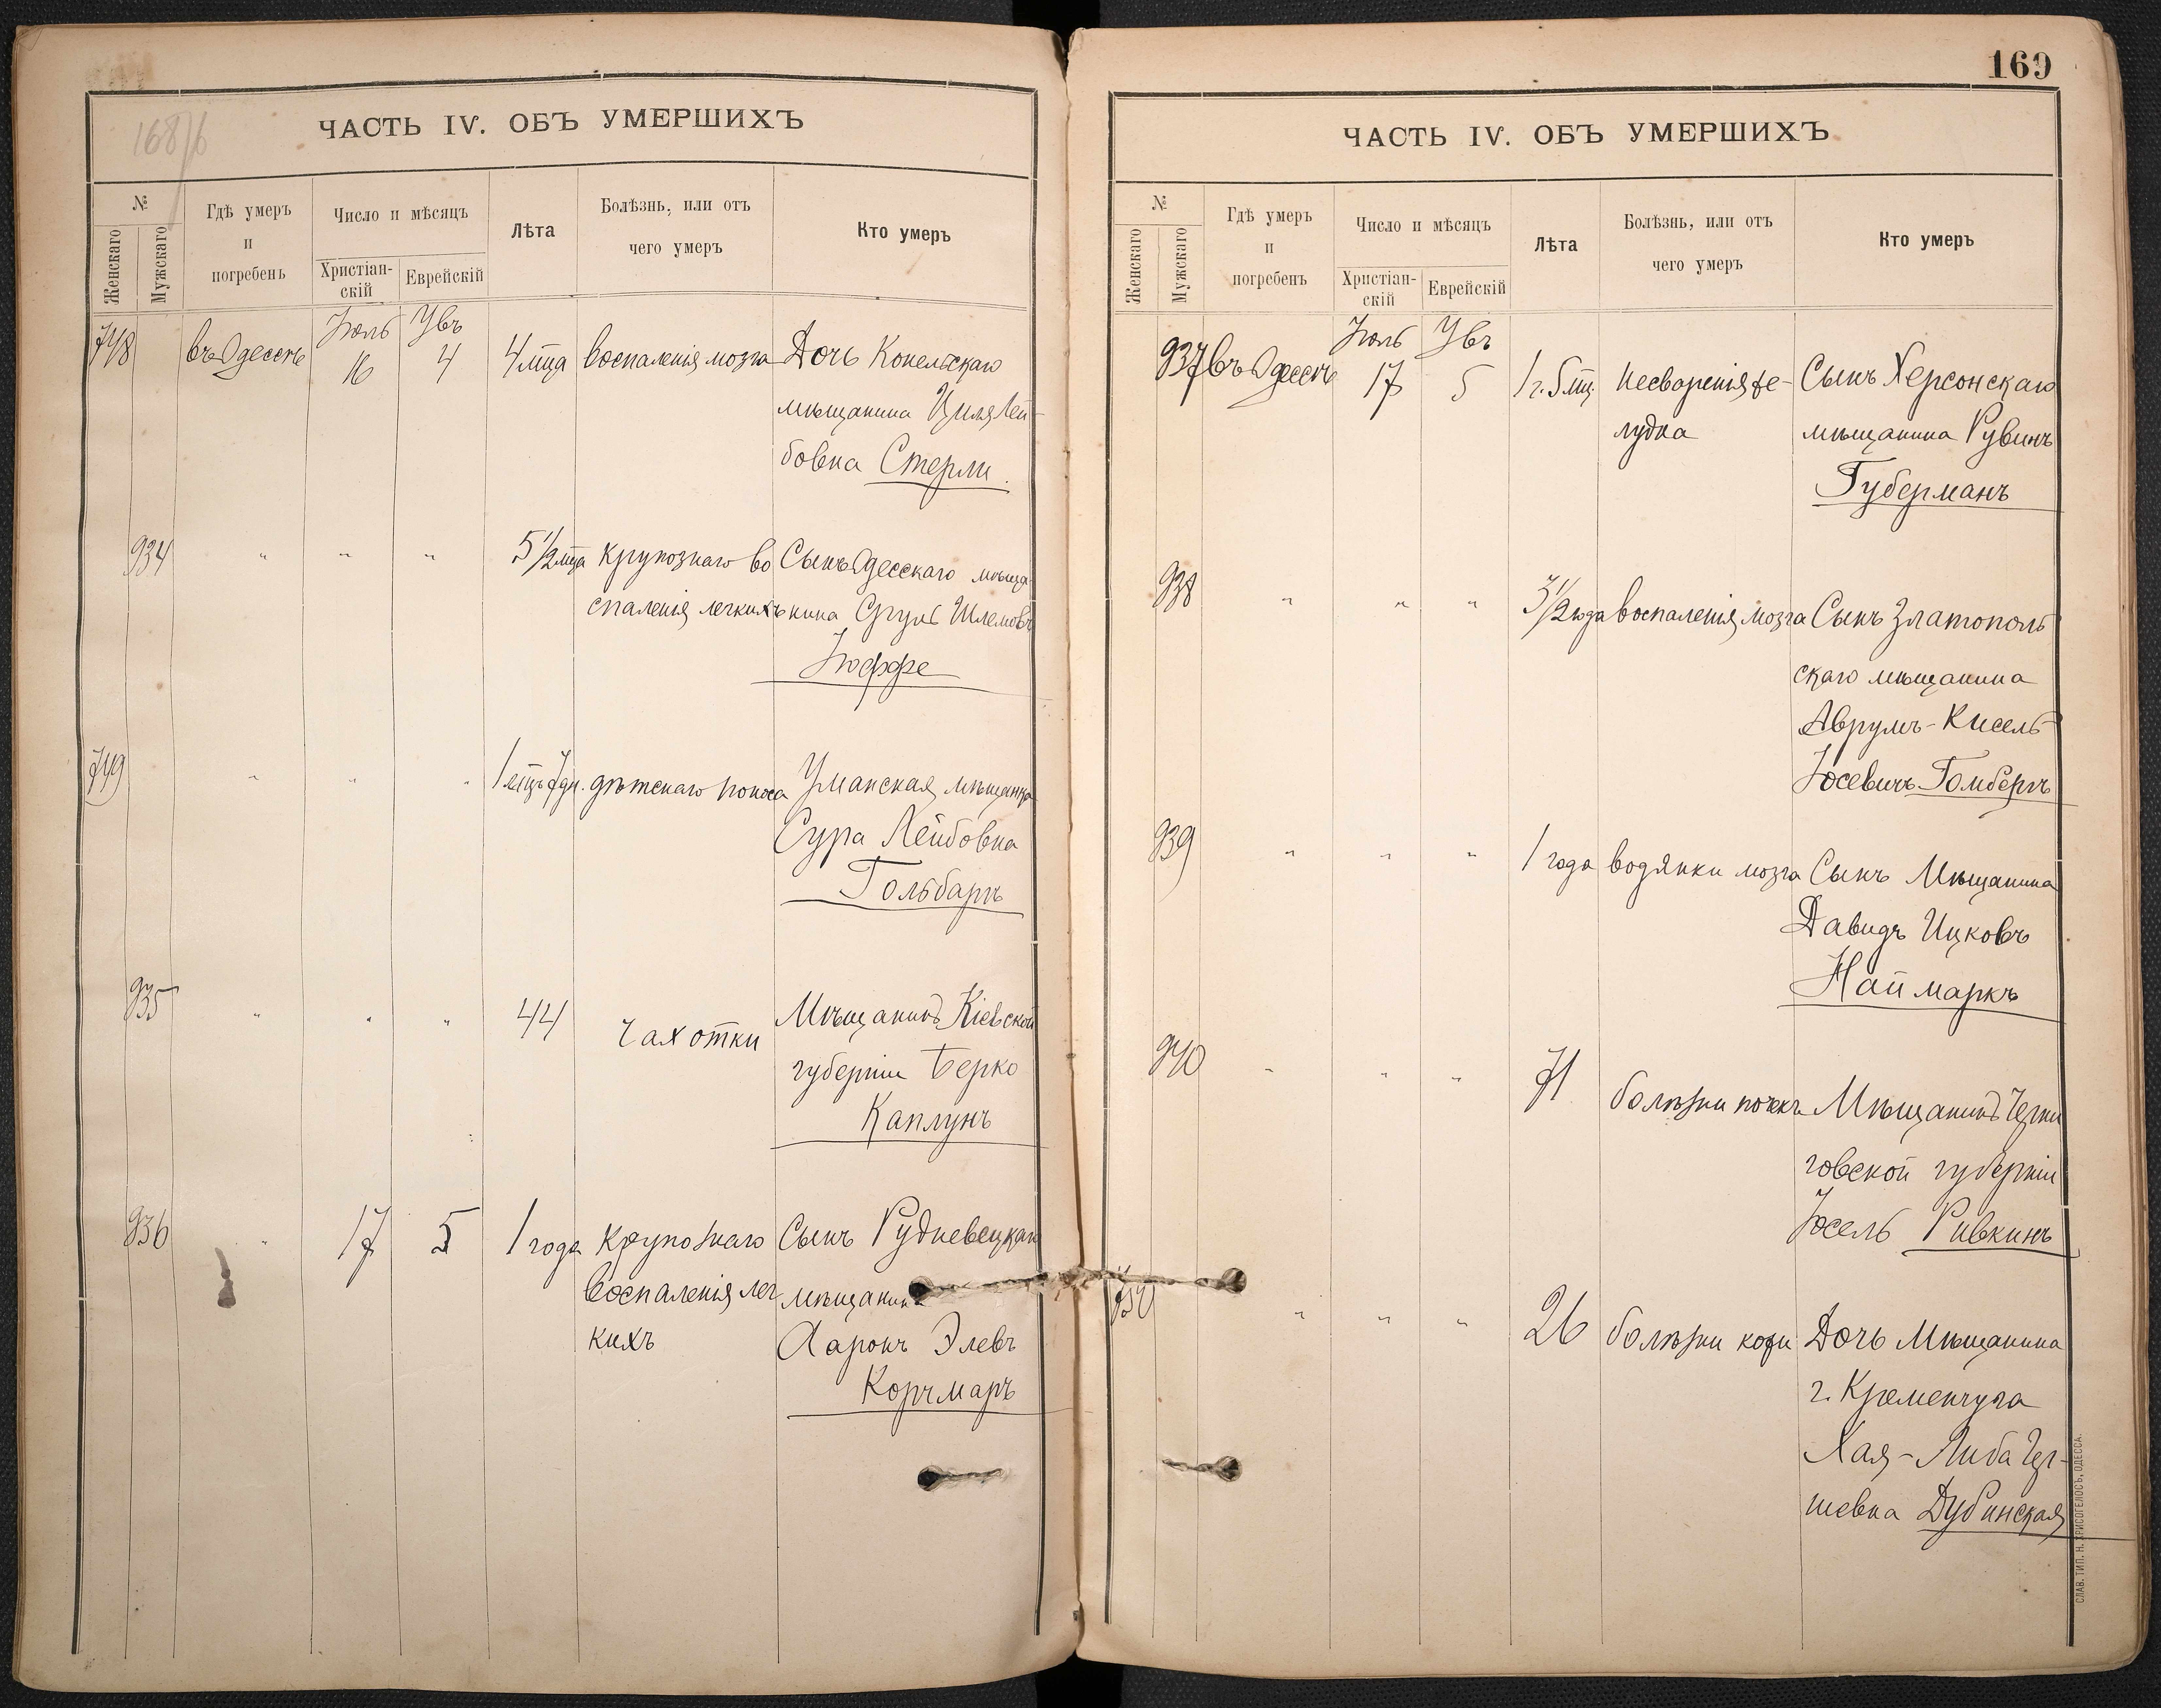 168/б
ЧАСТЬ IV. ОБЪ УМЕРШИХЪ
№
Женскаго
Мужскаго
Гдѣ умеръ
и
погребенъ
Число и мѣсяцъ
Христіан-
скій
Еврейскій
Лѣта
Болѣзнь, или отъ
чего умеръ
Кто умеръ
748 въ Одессѣ Іюль 16 Увъ 4 4 мца воспаленія мозга Дочь Конельскаго
мѣщанина Циля Лей-
бовна Стерли.
934 " " " 5 1/2 мца крупознаго во Сынъ Одесскаго мѣща
спаленія легкихъ нина Сруль Шлемовъ
Іоффе
749 " " " 1 мцъ 7 дн. дѣтскаго поноса Уманская мѣщанка
Сура Лейбовна
Гольбаръ
935 " " " 44 чахотки Мѣщанинъ Кіевской
губерніи Берко
Каплунъ
936 " 17 5 1 года крупознаго Сынъ
воспаленія лег мѣщанина
кихъ Ааронъ Элевъ
Корчмаръ
169
ЧАСТЬ IV. ОБЪ УМЕРШИХЪ
№
Женскаго
Мужскаго
Гдѣ умеръ
и
погребенъ
Число и мѣсяцъ
Христіан-
скій
Еврейскій
Лѣта
Болѣзнь, или отъ
чего умеръ
Кто умеръ
937 въ Одессѣ Іюль 17 Увъ 5 1 г. 5 мц. несваренія же- Сынъ Херсонскаго
лудка мѣщанина Рувинъ
Губерманъ
938 " " " 3 1/2 года воспаленія мозга Сынъ Златополь
скаго мѣщанина
Аврумъ-Кисель
Іосевичъ Гомбергъ
939 " " " 1 года водянки мозга Сынъ Мѣщанина
Давидъ Ицковъ
Наймаркъ
940 " " " 71 болѣзни почекъ Мѣщанинъ Черни
говской губерніи
Іосель Ривкинъ
750 " " " 26 болѣзни кожи Дочь Мѣщанина
г. Кременчуга
Хая-Либа Гер-
шевна Дубинская
СЛАВ. ТИП. Н. ХРИСОГЕЛОСЪ, ОДЕССА.